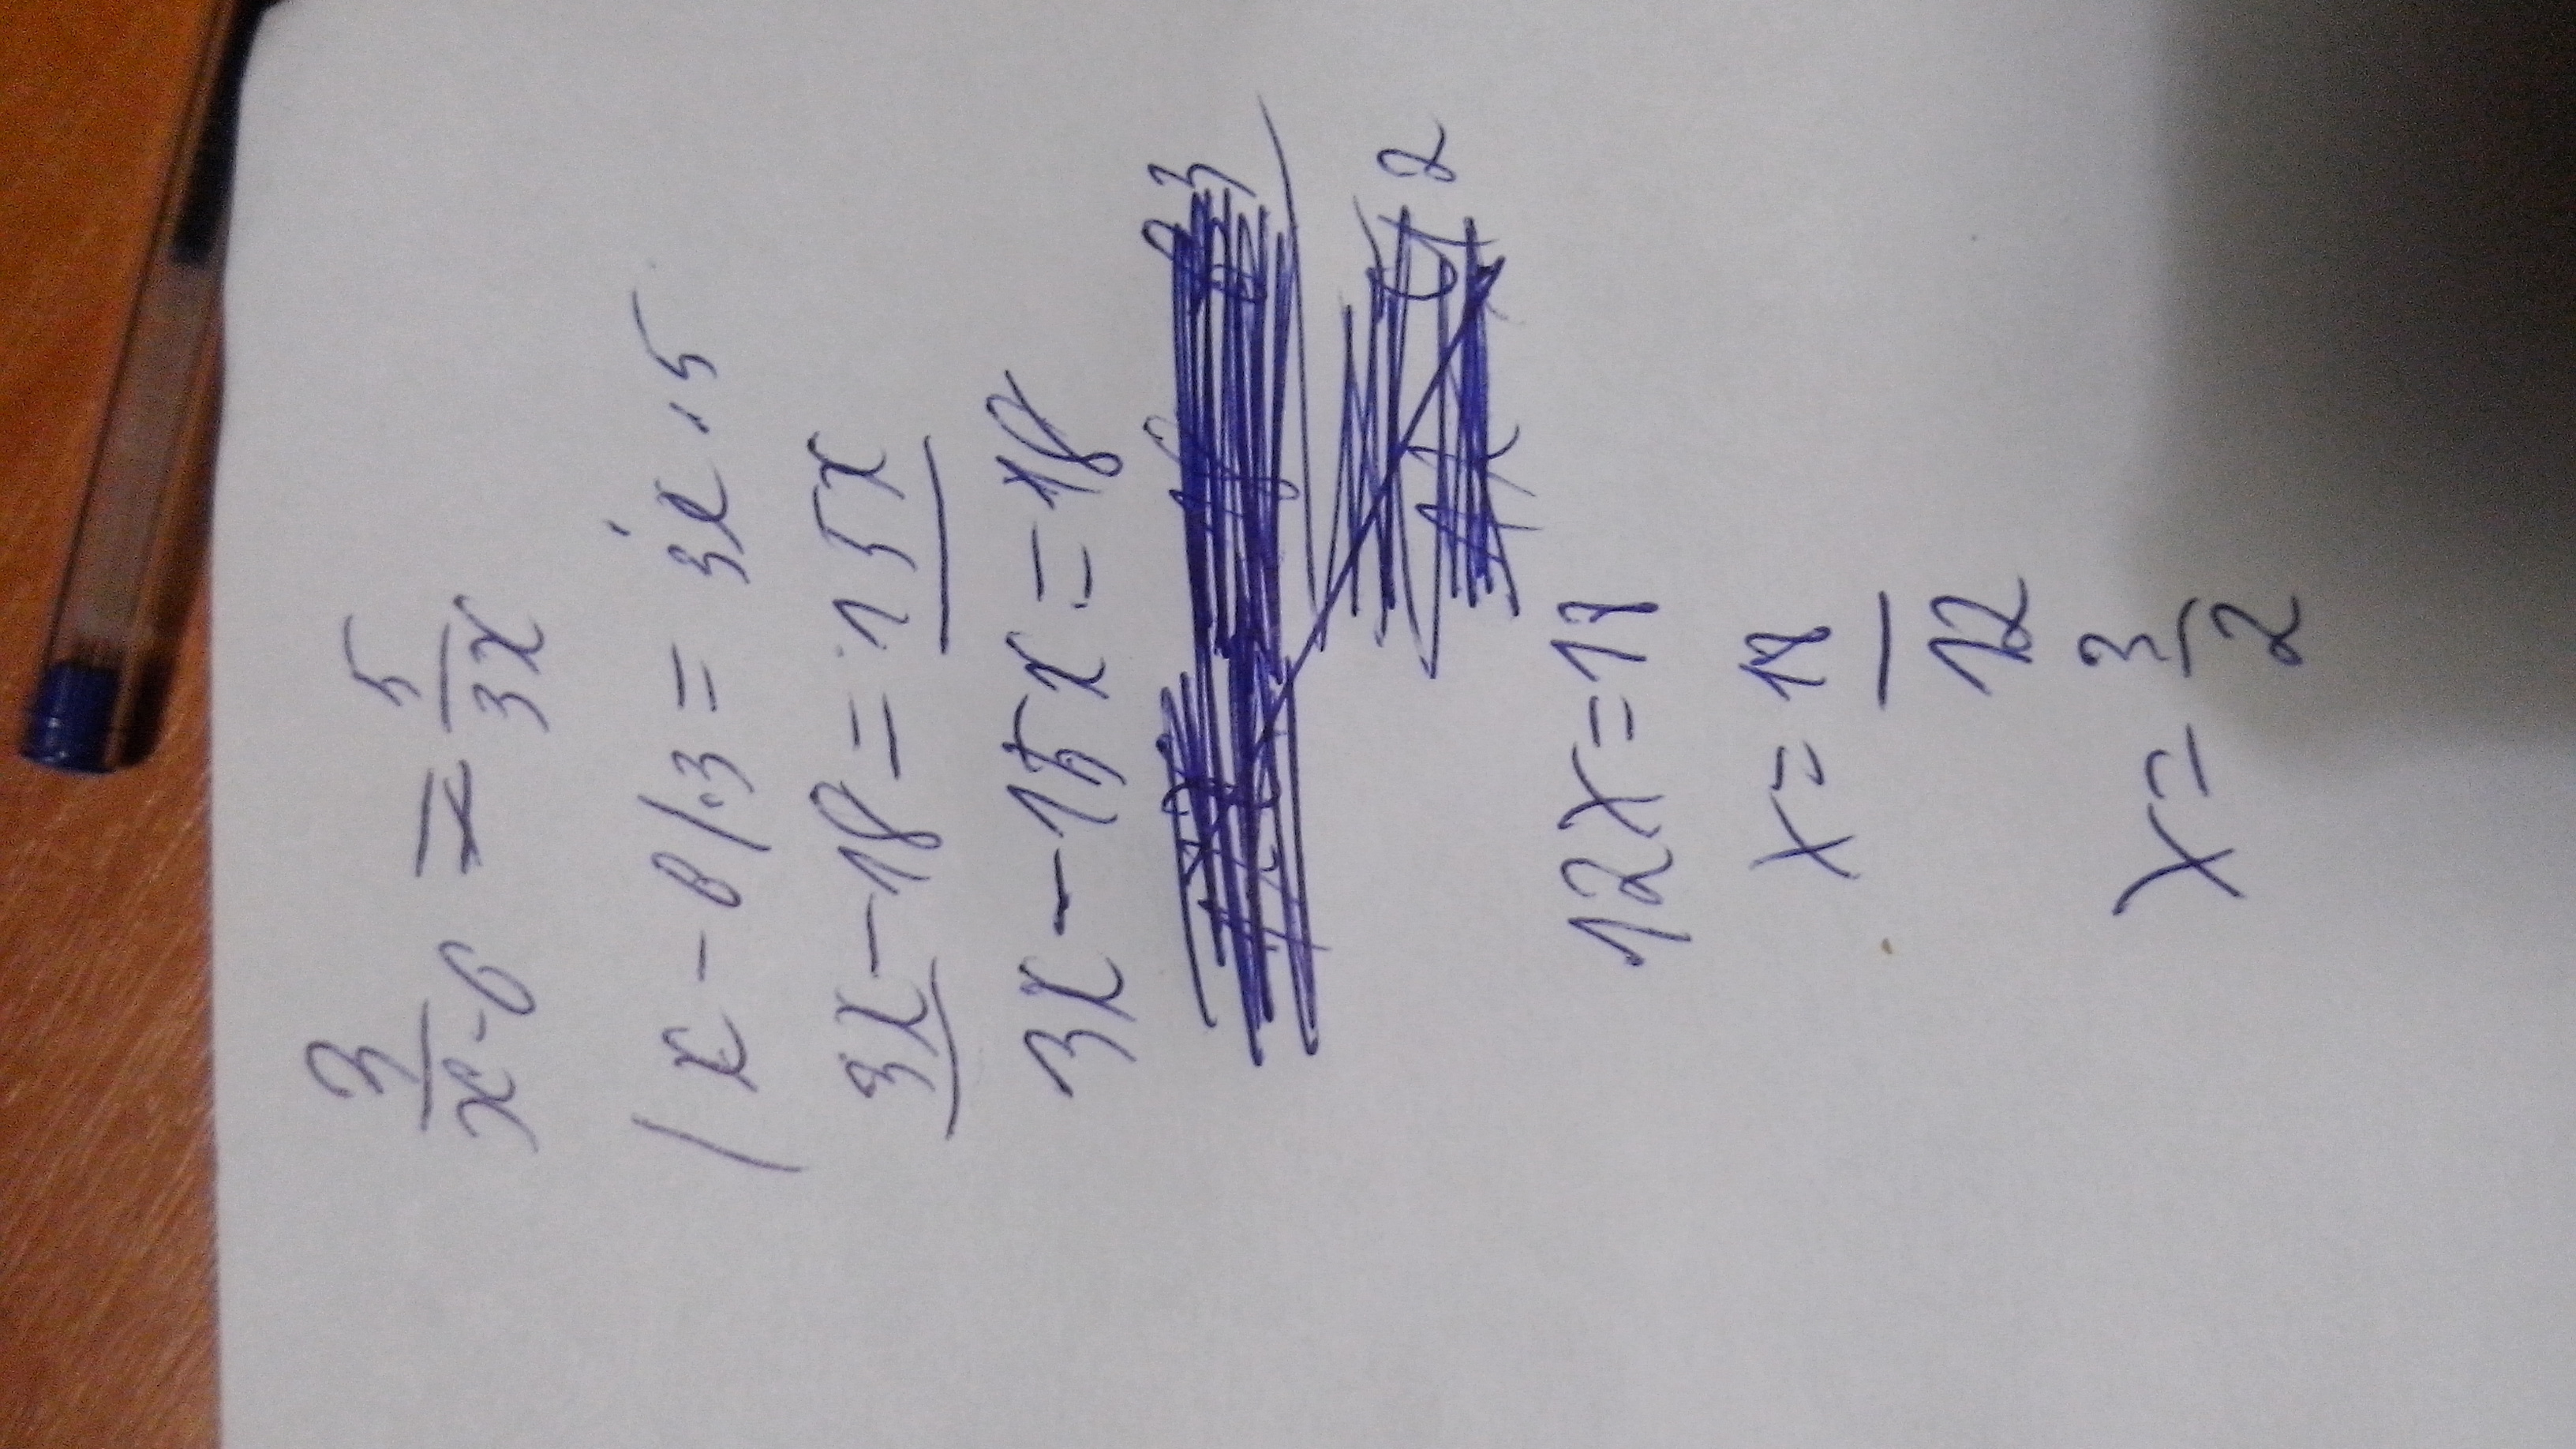 3/(x-6) = 5/(3x)
(x-6).3 = 3x.5
3x-18 = 15x
3x-15x = 18
12x=18
x= 18/12
x= 3/2